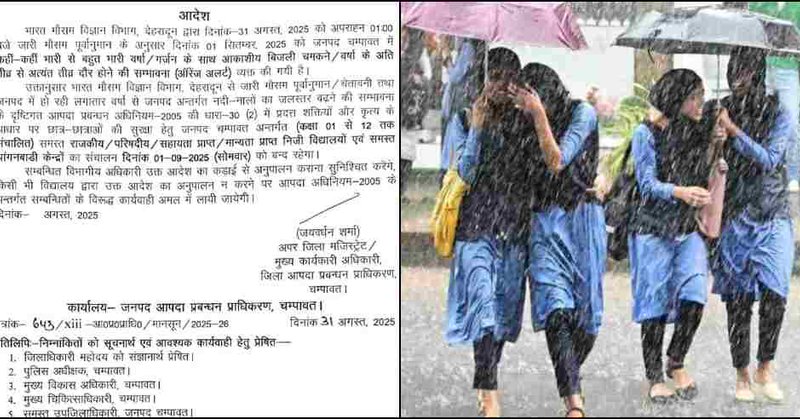 आदेश
भारत मौसम विज्ञान विभाग, देहरादून द्वारा दिनांक–31 अगस्त, 2025 को अपराहन 01:00
बजे जारी मौसम पूर्वानुमान के अनुसार दिनांक 01 सितम्बर, 2025 को जनपद चम्पावत में
कहीं–कहीं भारी से बहुत भारी वर्षा/गर्जन के साथ आकाशीय बिजली चमकने/वर्षा के अति
तीव्र से अत्यंत तीव्र दौर होने की सम्भावना (ऑरेंज अलर्ट) व्यक्त की गयी है।
उक्तानुसार भारत मौसम विज्ञान विभाग, देहरादून से जारी मौसम पूर्वानुमान/चेतावनी तथा
जनपद में हो रही लगातार वर्षा से जनपद अन्तर्गत नदी–नालों का जलस्तर बढ़ने की सम्भावना
के दृष्टिगत आपदा प्रबन्धन अधिनियम–2005 की धारा–30 (2) में प्रदत्त शक्तियों और कृत्य के
आधार पर छात्र–छात्राओं की सुरक्षा हेतु जनपद चम्पावत अन्तर्गत (कक्षा 01 से 12 तक
संचालित) समस्त राजकीय/परिषदीय/सहायता प्राप्त/मान्यता प्राप्त निजी विद्यालयों एवं समस्त
आंगनबाडी केन्द्रों का संचालन दिनांक 01–09–2025 (सोमवार) को बन्द रहेगा।
सम्बन्धित विभागीय अधिकारी उक्त आदेश का कड़ाई से अनुपालन कराना सुनिश्चित करेंगे,
किसी भी विद्यालय द्वारा उक्त आदेश का अनुपालन न करने पर आपदा अधिनियम–2005 के
अन्तर्गत सम्बन्धितों के विरूद्ध कार्यवाही अमल में लायी जायेगी।
दिनांक– अगस्त, 2025
(जयवर्धन शर्मा)
अपर जिला मजिस्ट्रेट/
मुख्य कार्यकारी अधिकारी,
जिला आपदा प्रबन्धन प्राधिकरण,
चम्पावत।
कार्यालय– जनपद आपदा प्रबन्धन प्राधिकरण, चम्पावत।
त्रांक– 643/xiii –आ०प्र०प्राधि०/मानसून/2025–26 दिनांक 31 अगस्त, 2025
तिलिपिः–निम्नांकितों को सूचनार्थ एवं आवश्यक कार्यवाही हेतु प्रेषित–
1. जिलाधिकारी महोदय को संज्ञानार्थ प्रेषित।
2. पुलिस अधीक्षक, चम्पावत।
3. मुख्य विकास अधिकारी, चम्पावत।
4. मुख्य चिकित्साधिकारी, चम्पावत।
5. समस्त उपजिलाधिकारी, जनपद चम्पावत